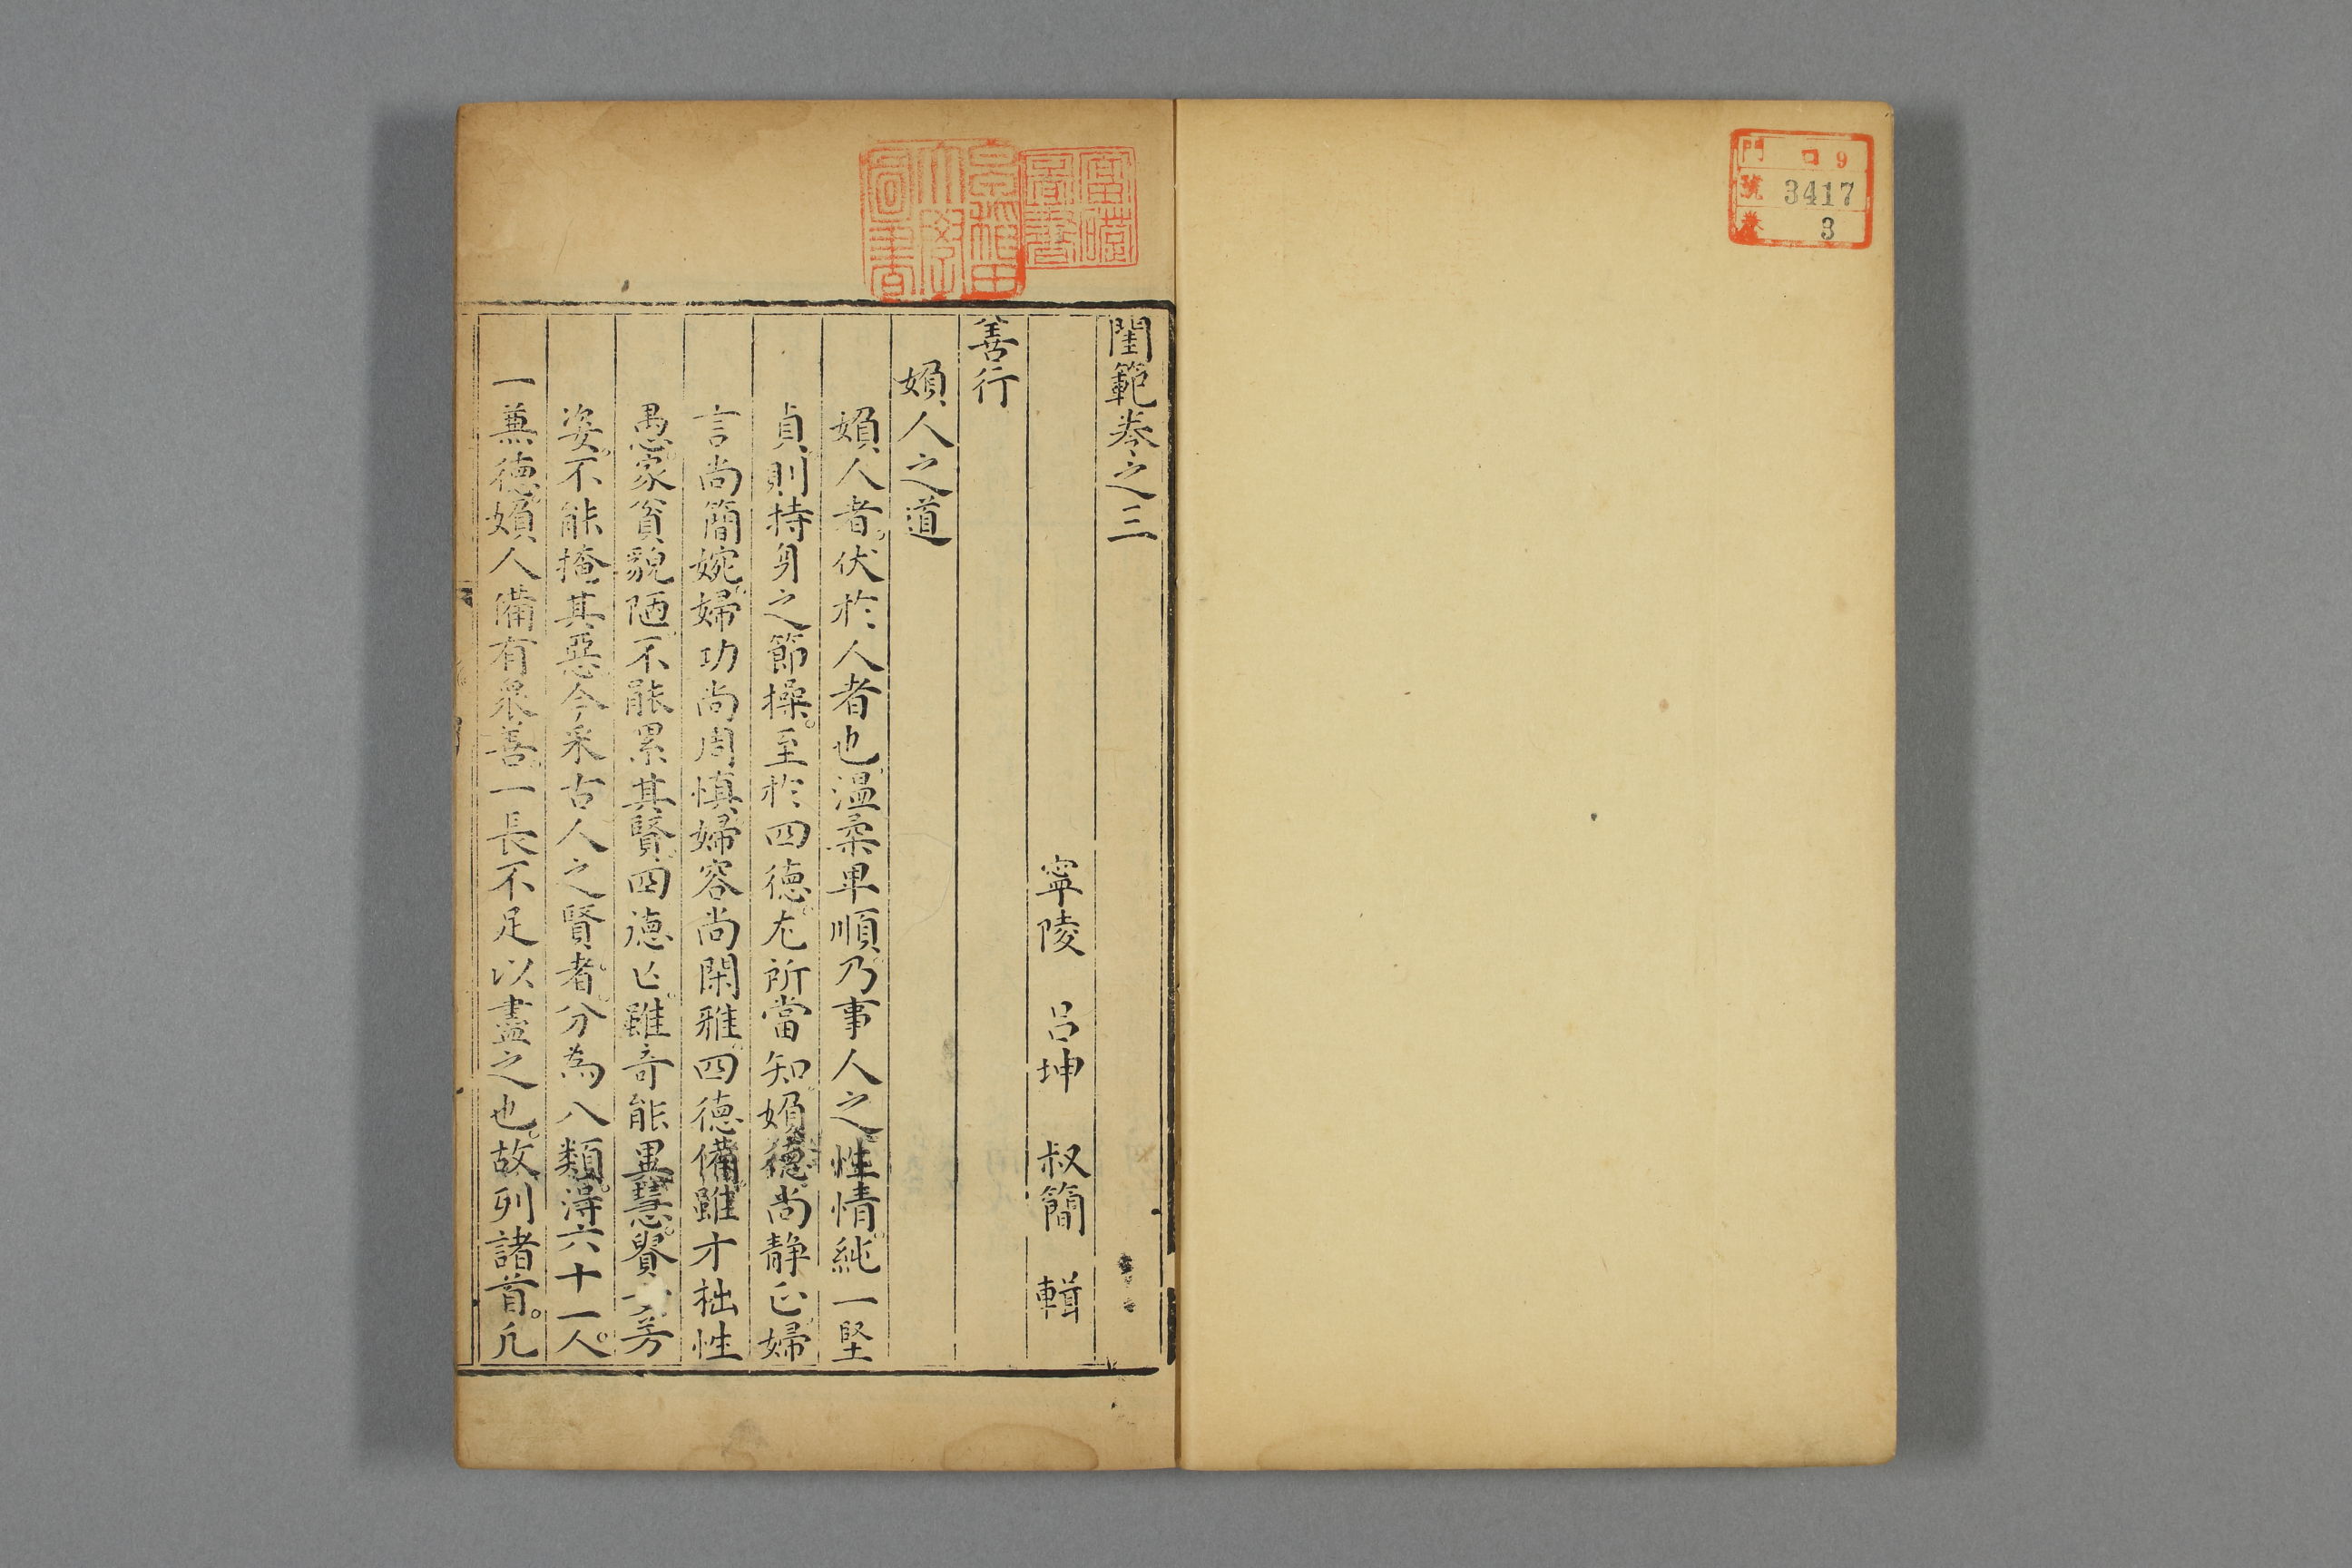 門 ロ 9
號 3417
卷 3
閨範卷之三
寧陵 呂坤 叔簡 輯
善行
媍人之道
媍人者。伏於人者也。溫柔卑順。乃事人之性情。純一堅
貞。則持身之節操。至於四德。尤所當知。媍德尚靜正。婦
言尚簡婉。婦功尚周慎。婦容尚閑雅。四德備。雖才拙性
愚。家貧貌陋。不能累其賢。四德亡。雖奇能異慧。貴芳
姿。不能掩其惡。今采古人之賢者。分為八類。得六十一人。
一兼德媍人。備有衆善。一長不足以盡之也。故列諸首。凡
早稻田大學圖書